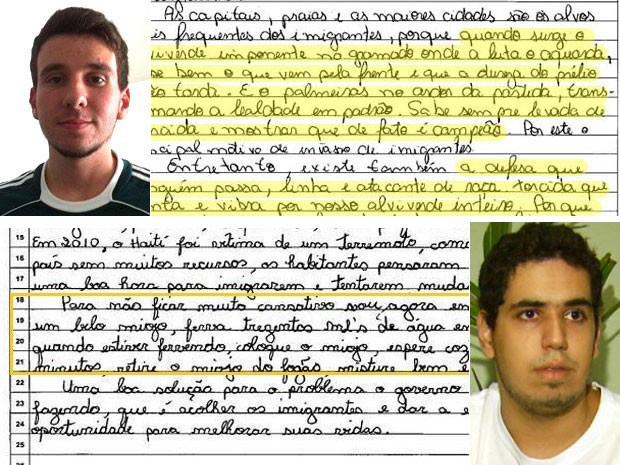 As capitais, praias e as maiores cidades são os alvos
is frequentes dos imigrantes, porque quando surge o
viverde imponente no gramado onde a luta o aguarda,
be bem o que vem pela frente e que a dureza do prélio
ão tarda. E o palmeiras no ardor da partida, trans-
mando a lealdade em padrão. Sabe sempre levada de
ncida e mostrar que de fato é campeão. Por este o
cipal motivo de invasão de imigrantes.
Entretanto, existe também a defesa que
nguém passa, linha e atacante de raça. torcida que
nta e vibra por nosso alviverde inteiro. Por que
15 Em 2010, o Haiti foi vítima de um terremoto, como
16 país sem muitos recursos, os habitantes pensaram
17 uma boa hora para imigrarem e tentarem muda
18 Para não ficar muito cansativo vou agora en
19 um belo miojo, ferva trezentos ml's de água em
20 quando estiver fervendo, coloque o miojo, espere coz
21 minutos, retire o miojo do fogão, misture bem e
22 Uma boa solução para o problema o governo
23 fazendo, que é acolher os imigrantes e dar a e
24 oportunidade para melhorar suas vidas.
25